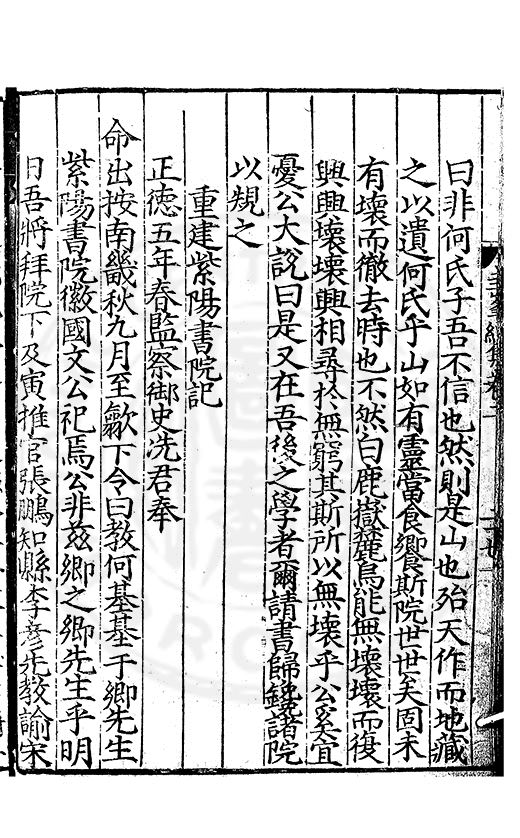 曰非何氏子吾不信也然則是山也殆天作而地藏
之以遺何氏乎山如有靈當食饗斯院世世矣固未
有壞而徹去時也不然白鹿嶽麓烏能無壞壞而復
興興壞壞興相尋於無窮其斯所以無壞乎公奚宜
憂公大說曰是又在吾後之學者爾請書歸鐫諸院
以規之
重建紫陽書院記
正德五年春監察御史冼君奉
命出按南畿秋九月至歙下令曰教何基基于鄉先生
紫陽書院徽國文公祀焉公非茲鄉之鄉先生乎明
日吾將拜院下及寅推官張鵬知縣李彥先教諭宋